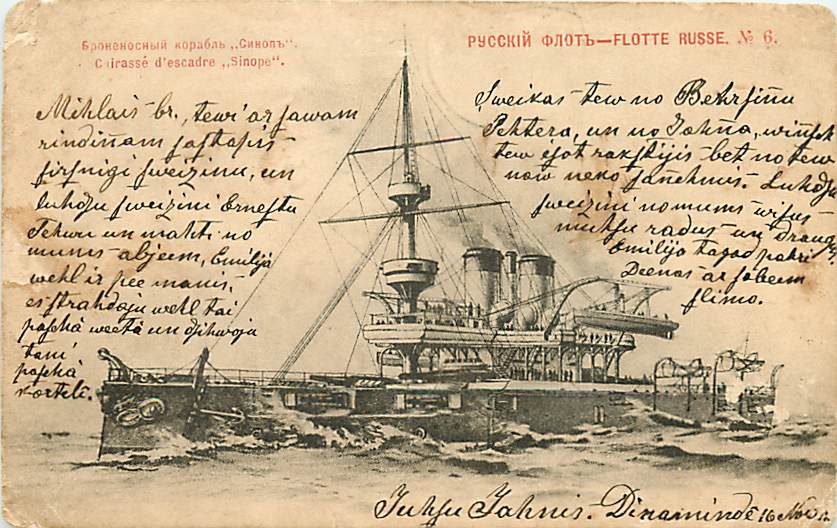 Броненосный корабль „Синопъ".
Cuirassé d'escadre „Sinope".
РУССКІЙ ФЛОТЪ—FLOTTE RUSSE. № 6.
Mihlais br., tewi ar sawam
rindiņam sastapis
sirsnigi sweizinu, un
luhdzu sweizini Ernestu
Tehwu un mahti no
mums abjeem, Emilija
wehl ir pee manis,
es strahdaju wehl tai
paschā weetā un dzihwoju
tani
paschā
kortelī.
Sweikas tew no Behrsiņu
Pehtera, un no Jahņa, wiņsch
tew ejot rakstijis bet no tew
naw neko sanehmis. Luhdzu
sweizini no mums wisus
muhsu radus un draugs
Emilija tagad pahri
Deenas ar sobeem
slimo.
Juhsu Jahnis. Dinamindē 16 Nov